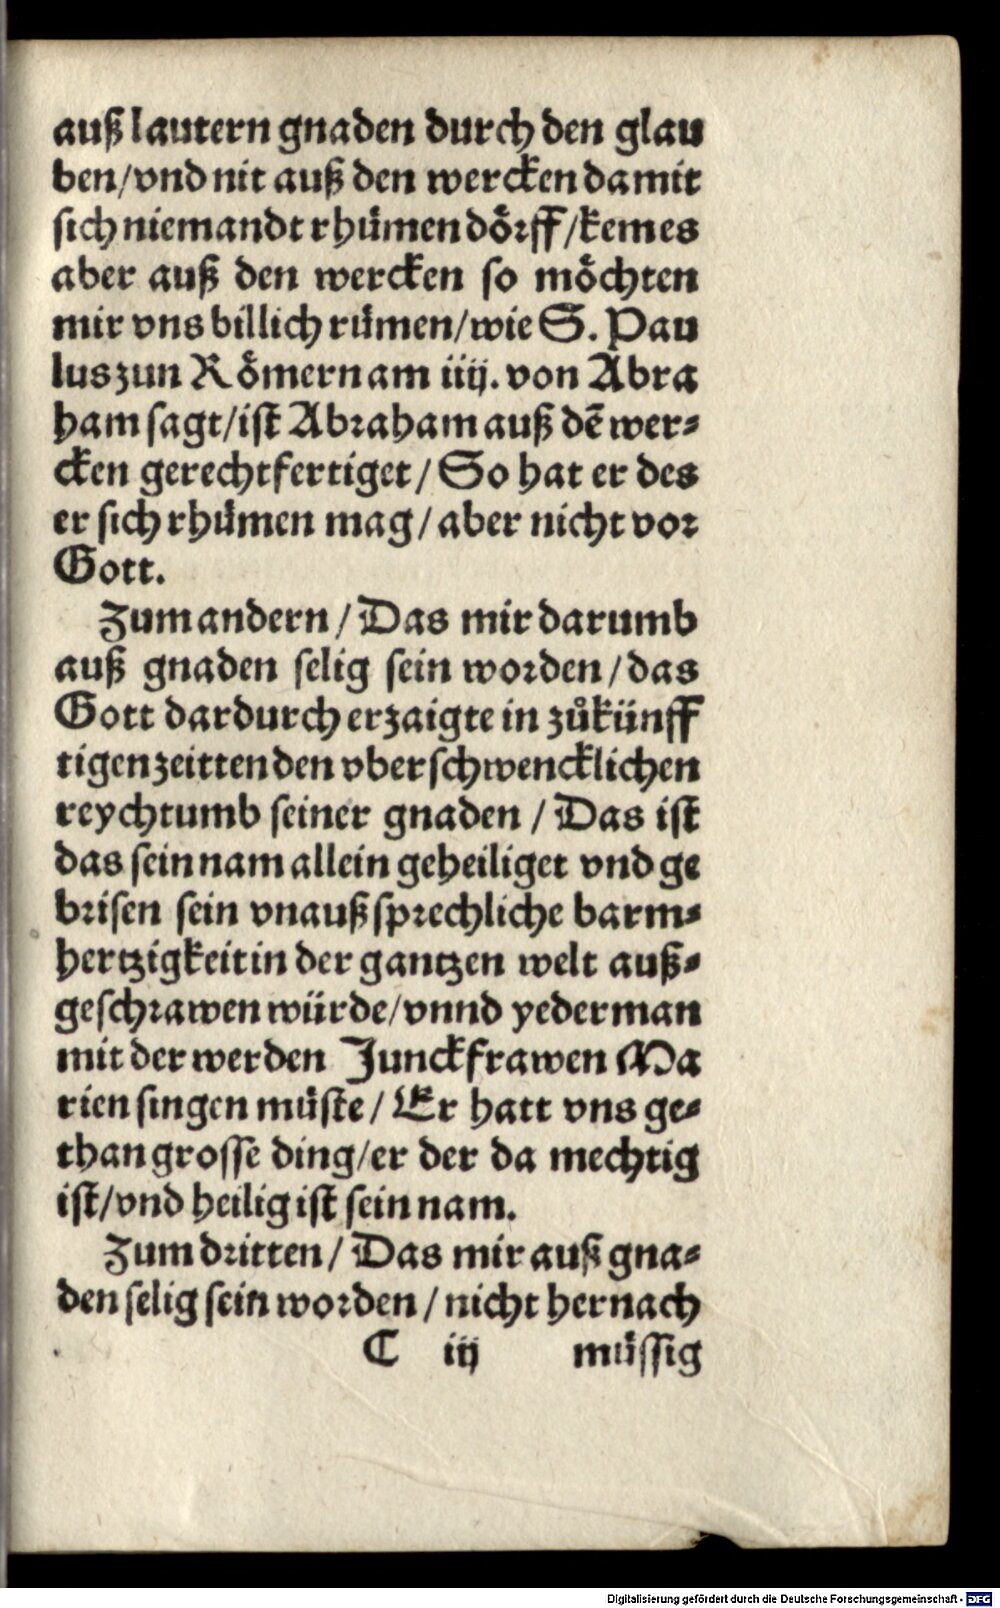 auß lautern gnaden durch den glau
ben/vnd nit auß den wercken damit
sich niemandt rhuͤmen doͤrff/kem es
aber auß den wercken so moͤchten
mir vns billich ruͤmen/wie S. Pau
lus zun Roͤmern am iiij. von Abra
ham sagt/ist Abraham auß dē wer-
cken gerechtfertiget/So hat er des
er sich rhuͤmen mag/aber nicht vor
Gott.
Zum andern/Das mir darumb
auß gnaden selig sein worden/das
Gott dardurch erzaigte in zuͦkünff
tigen zeitten den vberschwencklichen
reychtumb seiner gnaden/Das ist
das sein nam allein geheiliget vnd ge
brisen sein vnaußsprechliche barm-
hertzigkeit in der gantzen welt auß-
geschrawen würde/vnnd yederman
mit der werden Junckfrawen Ma
rien singen muͤste/Er hatt vns ge-
than grosse ding/er der da mechtig
ist/vnd heilig ist sein nam.
Zum dritten/Das mir auß gna-
den selig sein worden/nicht hernach
C iij muͤssig
Digitalisierung gefördert durch die Deutsche Forschungsgemeinschaft - DFG